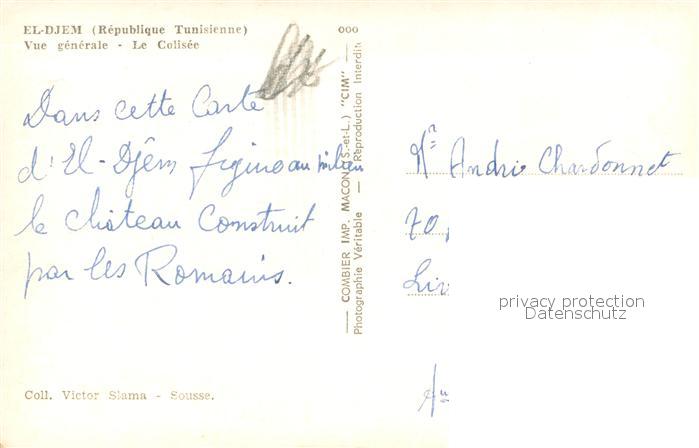 EL-DJEM (République Tunisienne)
Vue générale - Le Colisée
Dans cette Carte
d'El-Djem figine au milieu
le château Construit
par les Romains.
Coll. Victor Slama - Sousse.
COMBIER IMP. MACON (S.-et-L.) "CIM"
Photographie Véritable — Reproduction Interdite
Mr Andri Chardonnet
70,
Liv
privacy protection
Datenschutz